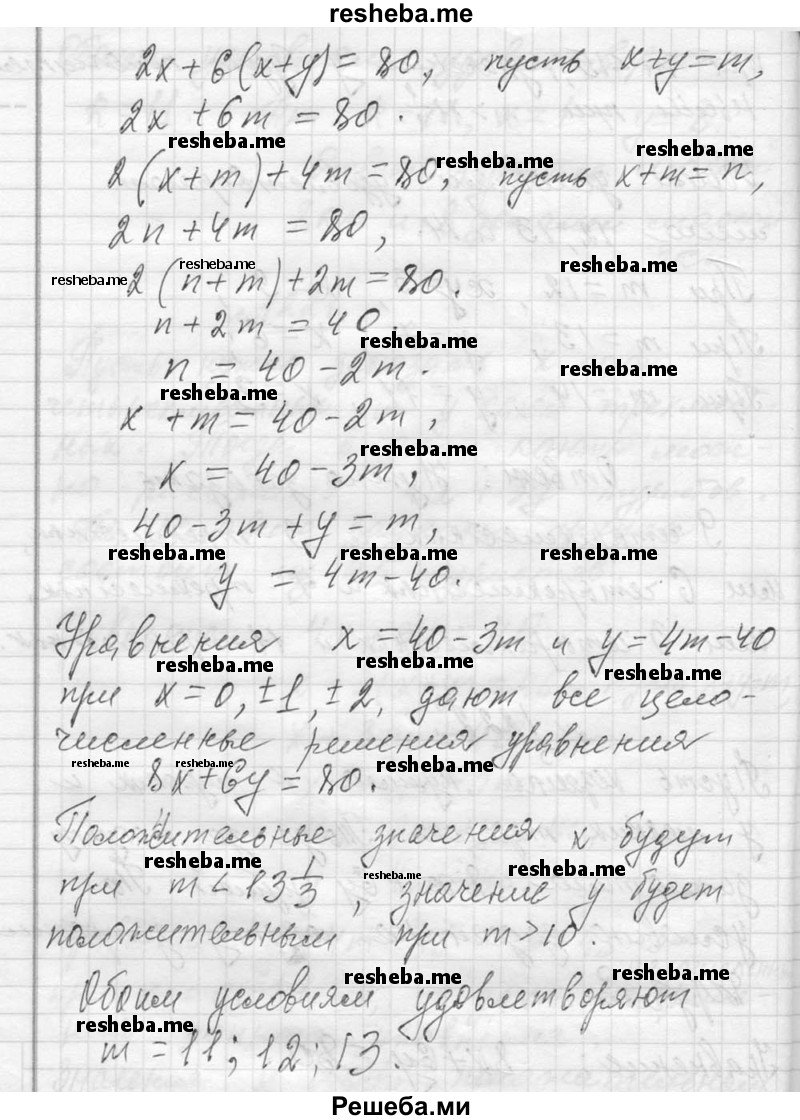 resheba.me
2x + 6(x+y) = 80, пусть x+y = m,
2x + 6m = 80.
resheba.me
resheba.me resheba.me
2(x+m) + 4m = 80, пусть x+m = n,
2n + 4m = 80,
resheba.me resheba.me resheba.me
2(n+m) + 2m = 80.
n + 2m = 40.
resheba.me
n = 40 - 2m.
resheba.me resheba.me
x + m = 40 - 2m,
resheba.me
x = 40 - 3m,
40 - 3m + y = m,
resheba.me resheba.me resheba.me
y = 4m - 40.
Уравнения x = 40 - 3m и y = 4m - 40
resheba.me resheba.me resheba.me
при x = 0, ±1, ±2, дают все цело-
численные решения уравнения
resheba.me resheba.me resheba.me
8x + 6y = 80.
Положительные значения x будут
resheba.me resheba.me resheba.me
при m < 13 1/3, значение y будет
положительным при m > 10.
resheba.me resheba.me
Обоим условиям удовлетворяют
resheba.me
m = 11; 12; 13.
Решеба.ми